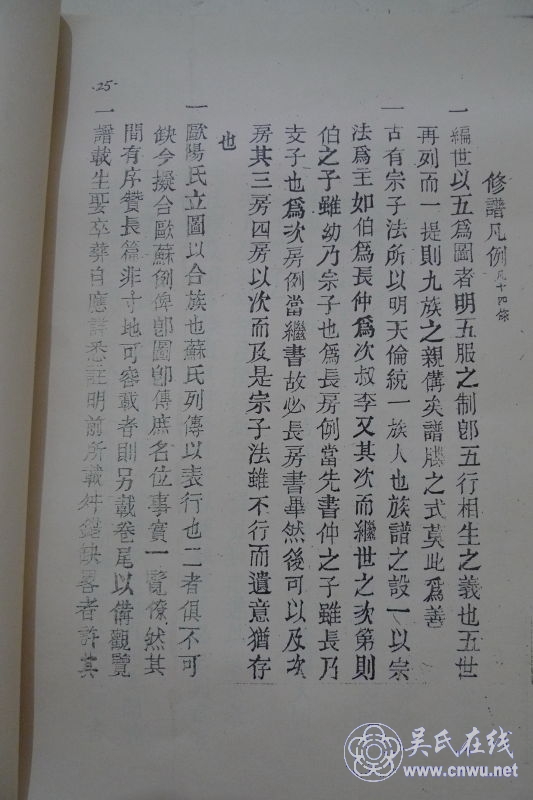 修譜凡例 凡十四條
一編世以五爲圖者明五服之制卽五行相生之義也五世
再列而一提則九族之親備矣譜牒之式莫此爲善
一古有宗子法所以明天倫統一族人也族譜之設一以宗
法爲主如伯爲長仲爲次叔季又其次而繼世之次第則
伯之子雖幼乃宗子也爲長房例當先書仲之子雖長乃
支子也爲次房例當繼書故必長房書畢然後可以及次
房其三房四房以次而及是宗子法雖不行而遺意猶存
也
一歐陽氏立圖以合族也蘇氏列傳以表行也二者俱不可
缺今擬合歐蘇例俾卽圖卽傳庶名位事實一覽僚然其
間有序贊長篇非寸地可容載者則另載卷尾以備觀覽
一譜載生娶卒葬自應詳悉註明前所載舛錯缺畧者許其
·25·
吴氏在线
www.cnwu.net